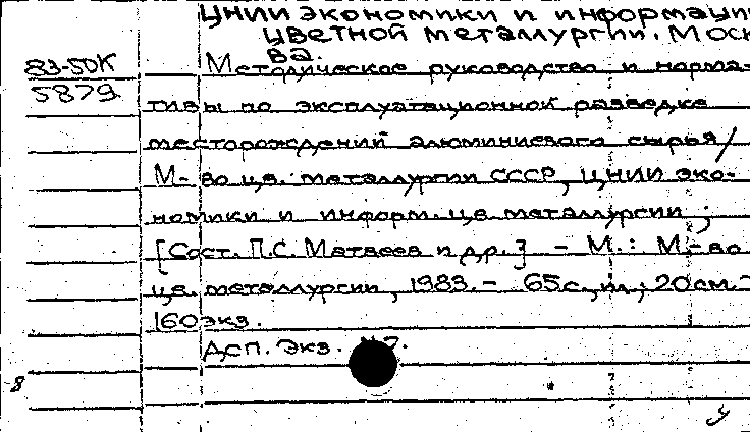 ЦНИИ экономики и информации
цветной металлургии. Моск
ва.
83-50К
5879
Методическое руководство и норма-
тивы по эксплуатационной разведке
месторождений алюминиевого сырья/
М-во цв. металлургии СССР, ЦНИИ эко-
номики и информ. цв. металлургии;
[Сост. П.С. Матвеев и др.] - М.: М-во
цв. металлургии, 1983. - 65с., ил.; 20см. -
160экз.
ДСП. Экз.
8